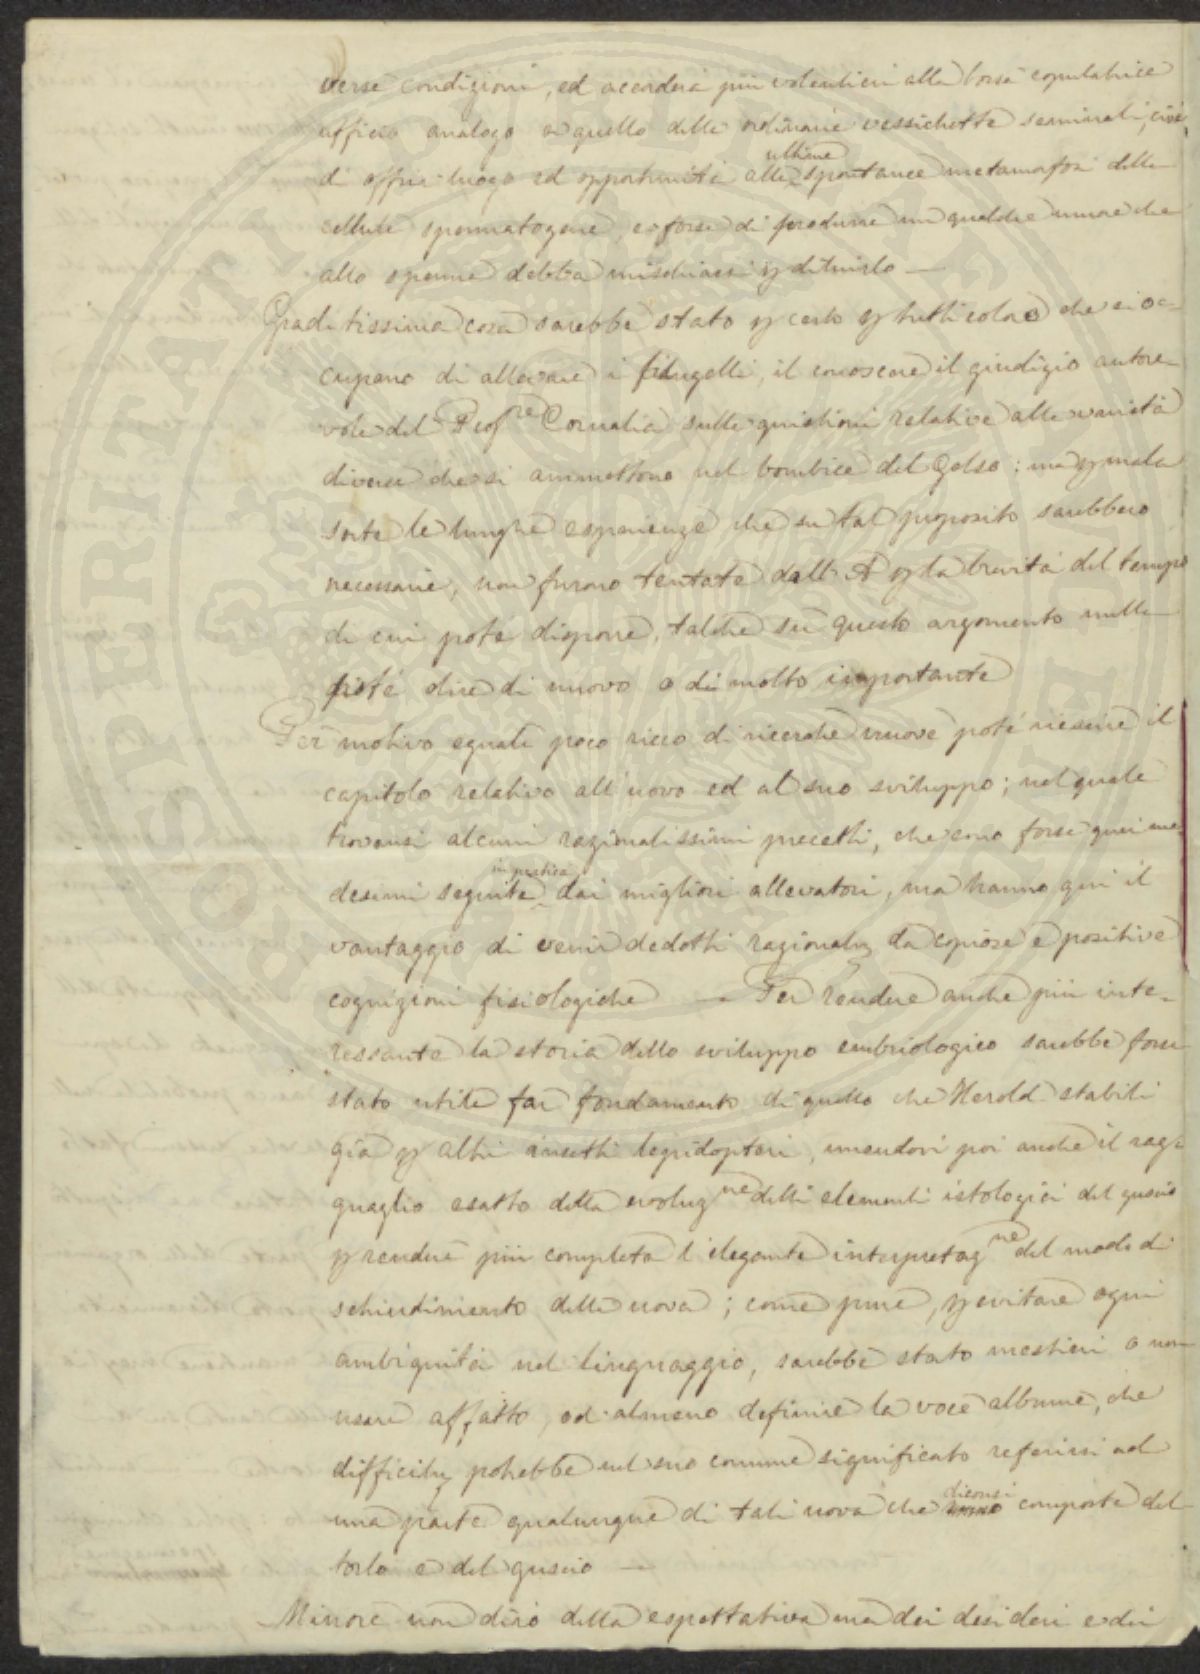 verse condizioni, ed accorderà più volentieri alla borsa copulatrice
officio analogo a quello delle ordinarie vessichette seminali, cioè
di offrir luogo ed opportunità alle ultime spontanee metamorfosi delle
cellule spermatogene, e forse di produrre un qualche umore che
allo sperma debba mischiarsi p diluirlo —
Graditissima cosa sarebbe stato p certo p tutti coloro che si oc-
cupano di allevare i filugelli, il conoscere il giudizio autore-
vole del Profre Cornalia sulle quistioni relative alle varietà
diverse che si ammettono nel bombice del Gelso: ma p mala
sorte le lunghe esperienze che su tal proposito sarebbero
necessarie, non furono tentate dall'A p la brevità del tempo
di cui poté disporre, talché su questo argomento nulla
poté dire di nuovo o di molto importante
Per motivo eguale poco ricco di ricerche nuove poté riescire il
capitolo relativo all'uovo ed al suo sviluppo; nel quale
trovansi alcuni razionalissimi precetti, che sono forse quei me-
desimi seguite in pratica dai migliori allevatori, ma hanno qui il
vantaggio di venir dedotti razionalm da copiose e positive
cognizioni fisiologiche — Per rendere anche più inte-
ressante la storia dello sviluppo embriologico sarebbe forse
stato utile far fondamento di quello che Herold stabilì
già p altri insetti lepidopteri, unendovi poi anche il rag-
guaglio esatto della evoluzne delli elementi istologici del guscio
p rendere più completa l'elegante interpretazne del modo di
schiudimento delle uova; come pure, p evitare ogni
ambiguità nel linguaggio, sarebbe stato mestieri o non
usare affatto, od almeno definire la voce albume, che
difficilm potrebbe nel suo comune significato referirsi ad
una parte qualunque di tali uova che diconsi composte del
torlo e del guscio —
Minore non dirò della espettativa ma dei desideri e dei
PROSPERITATI PUBLICAE AUGENDAE